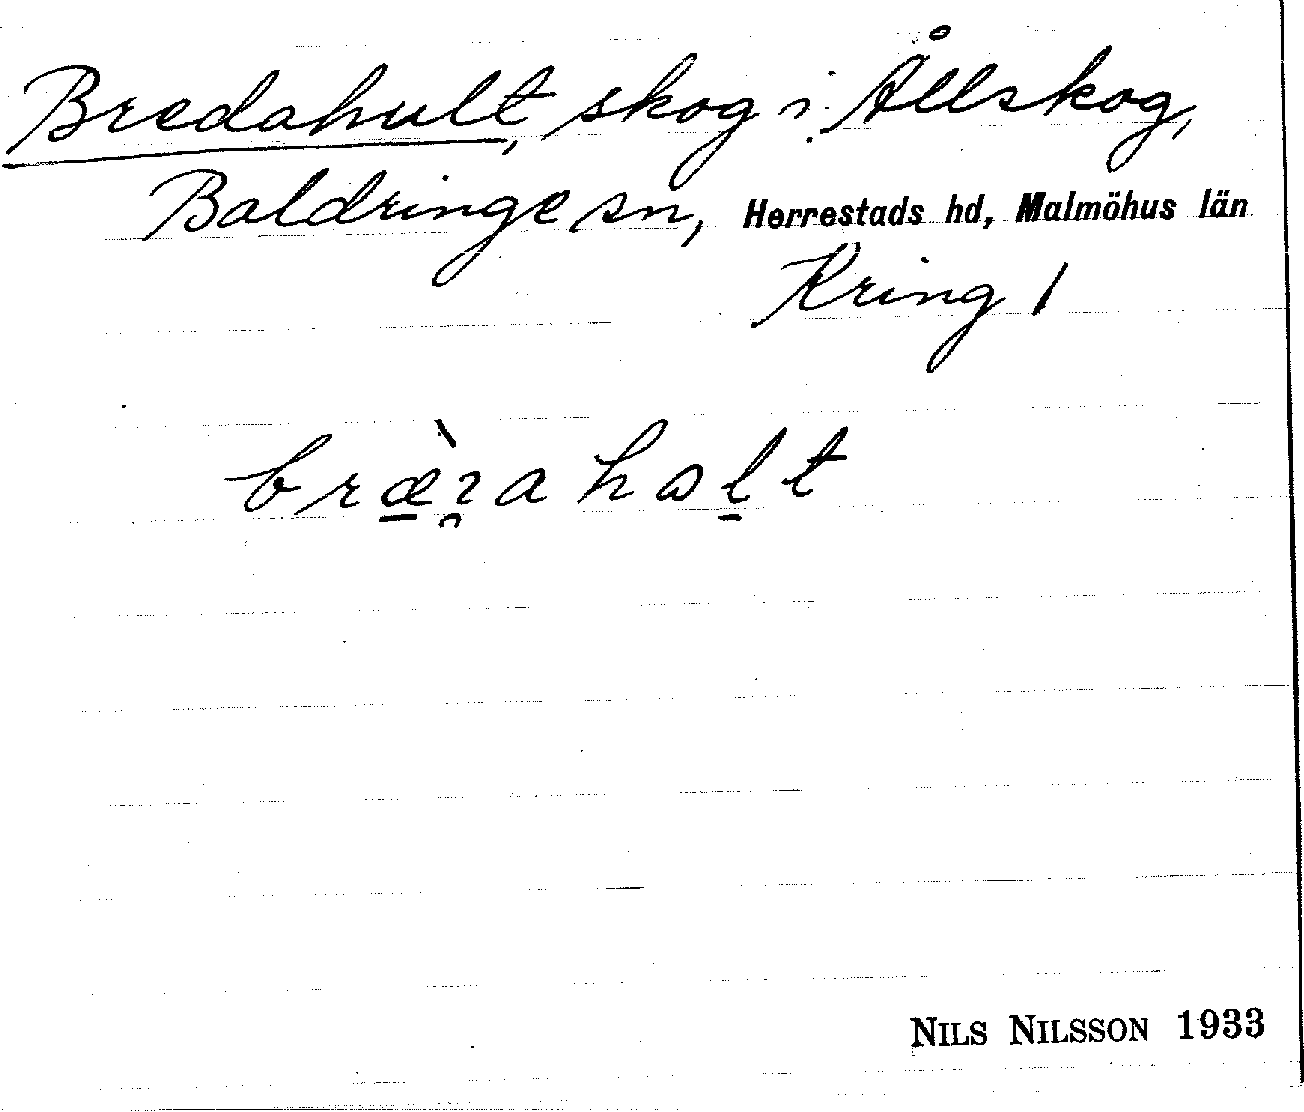 Bredahult, skog i Ållskog,
Baldringe sn, Herrestads hd, Malmöhus län
Kring 1
bræ̠̀ɿ̯a hωl̠t
NILS NILSSON 1933